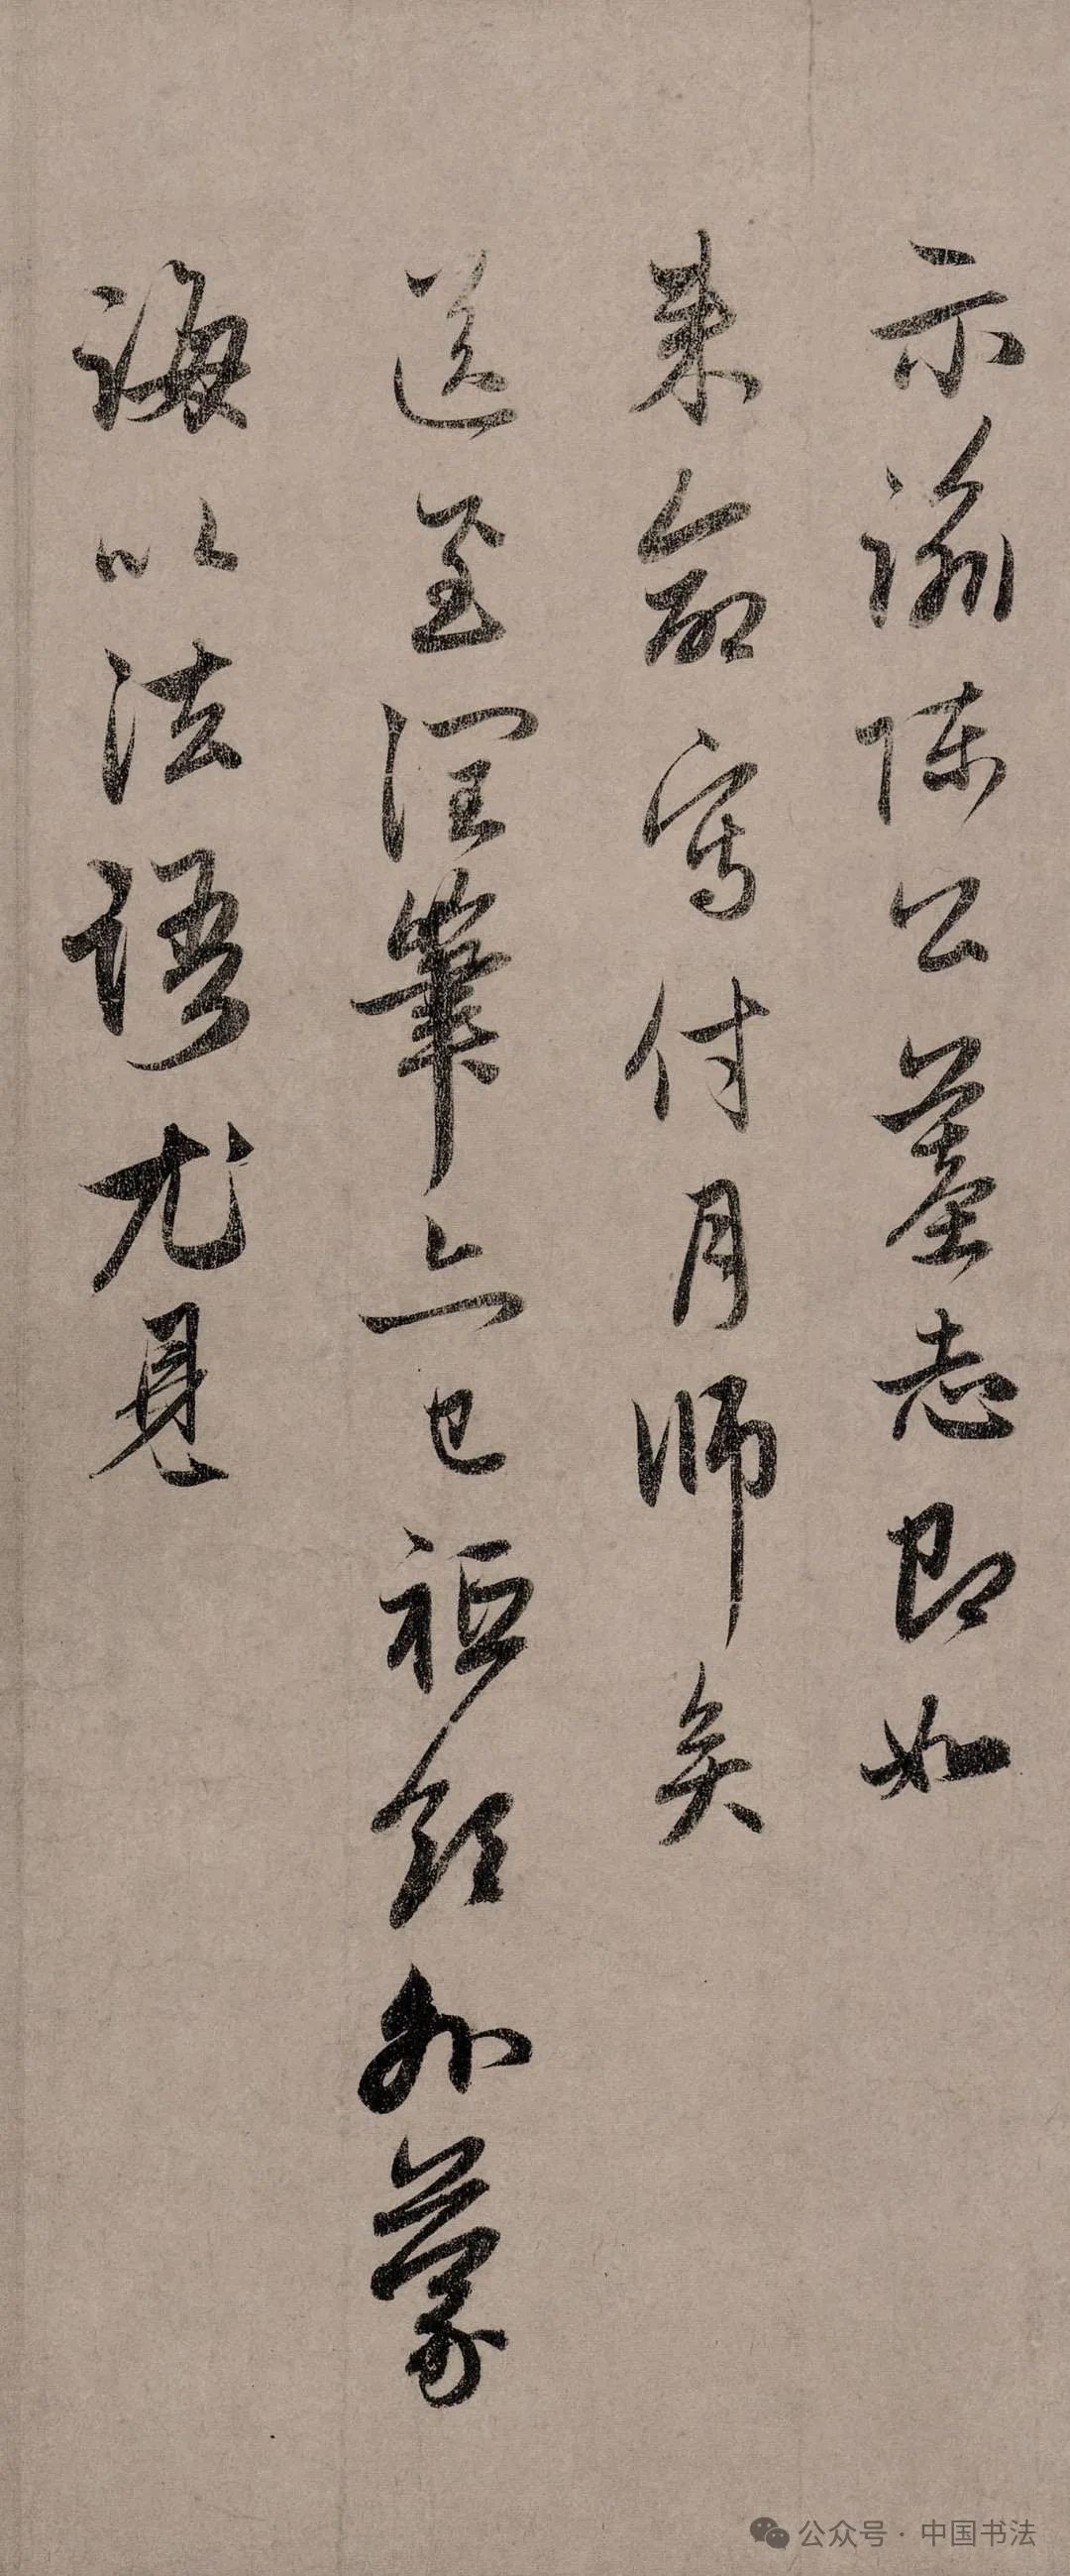 示諭陳公墓志即如
来命寫付月師矣
送至潤筆亦已祗領外蒙
誨以法語尤見
公众号·中国书法